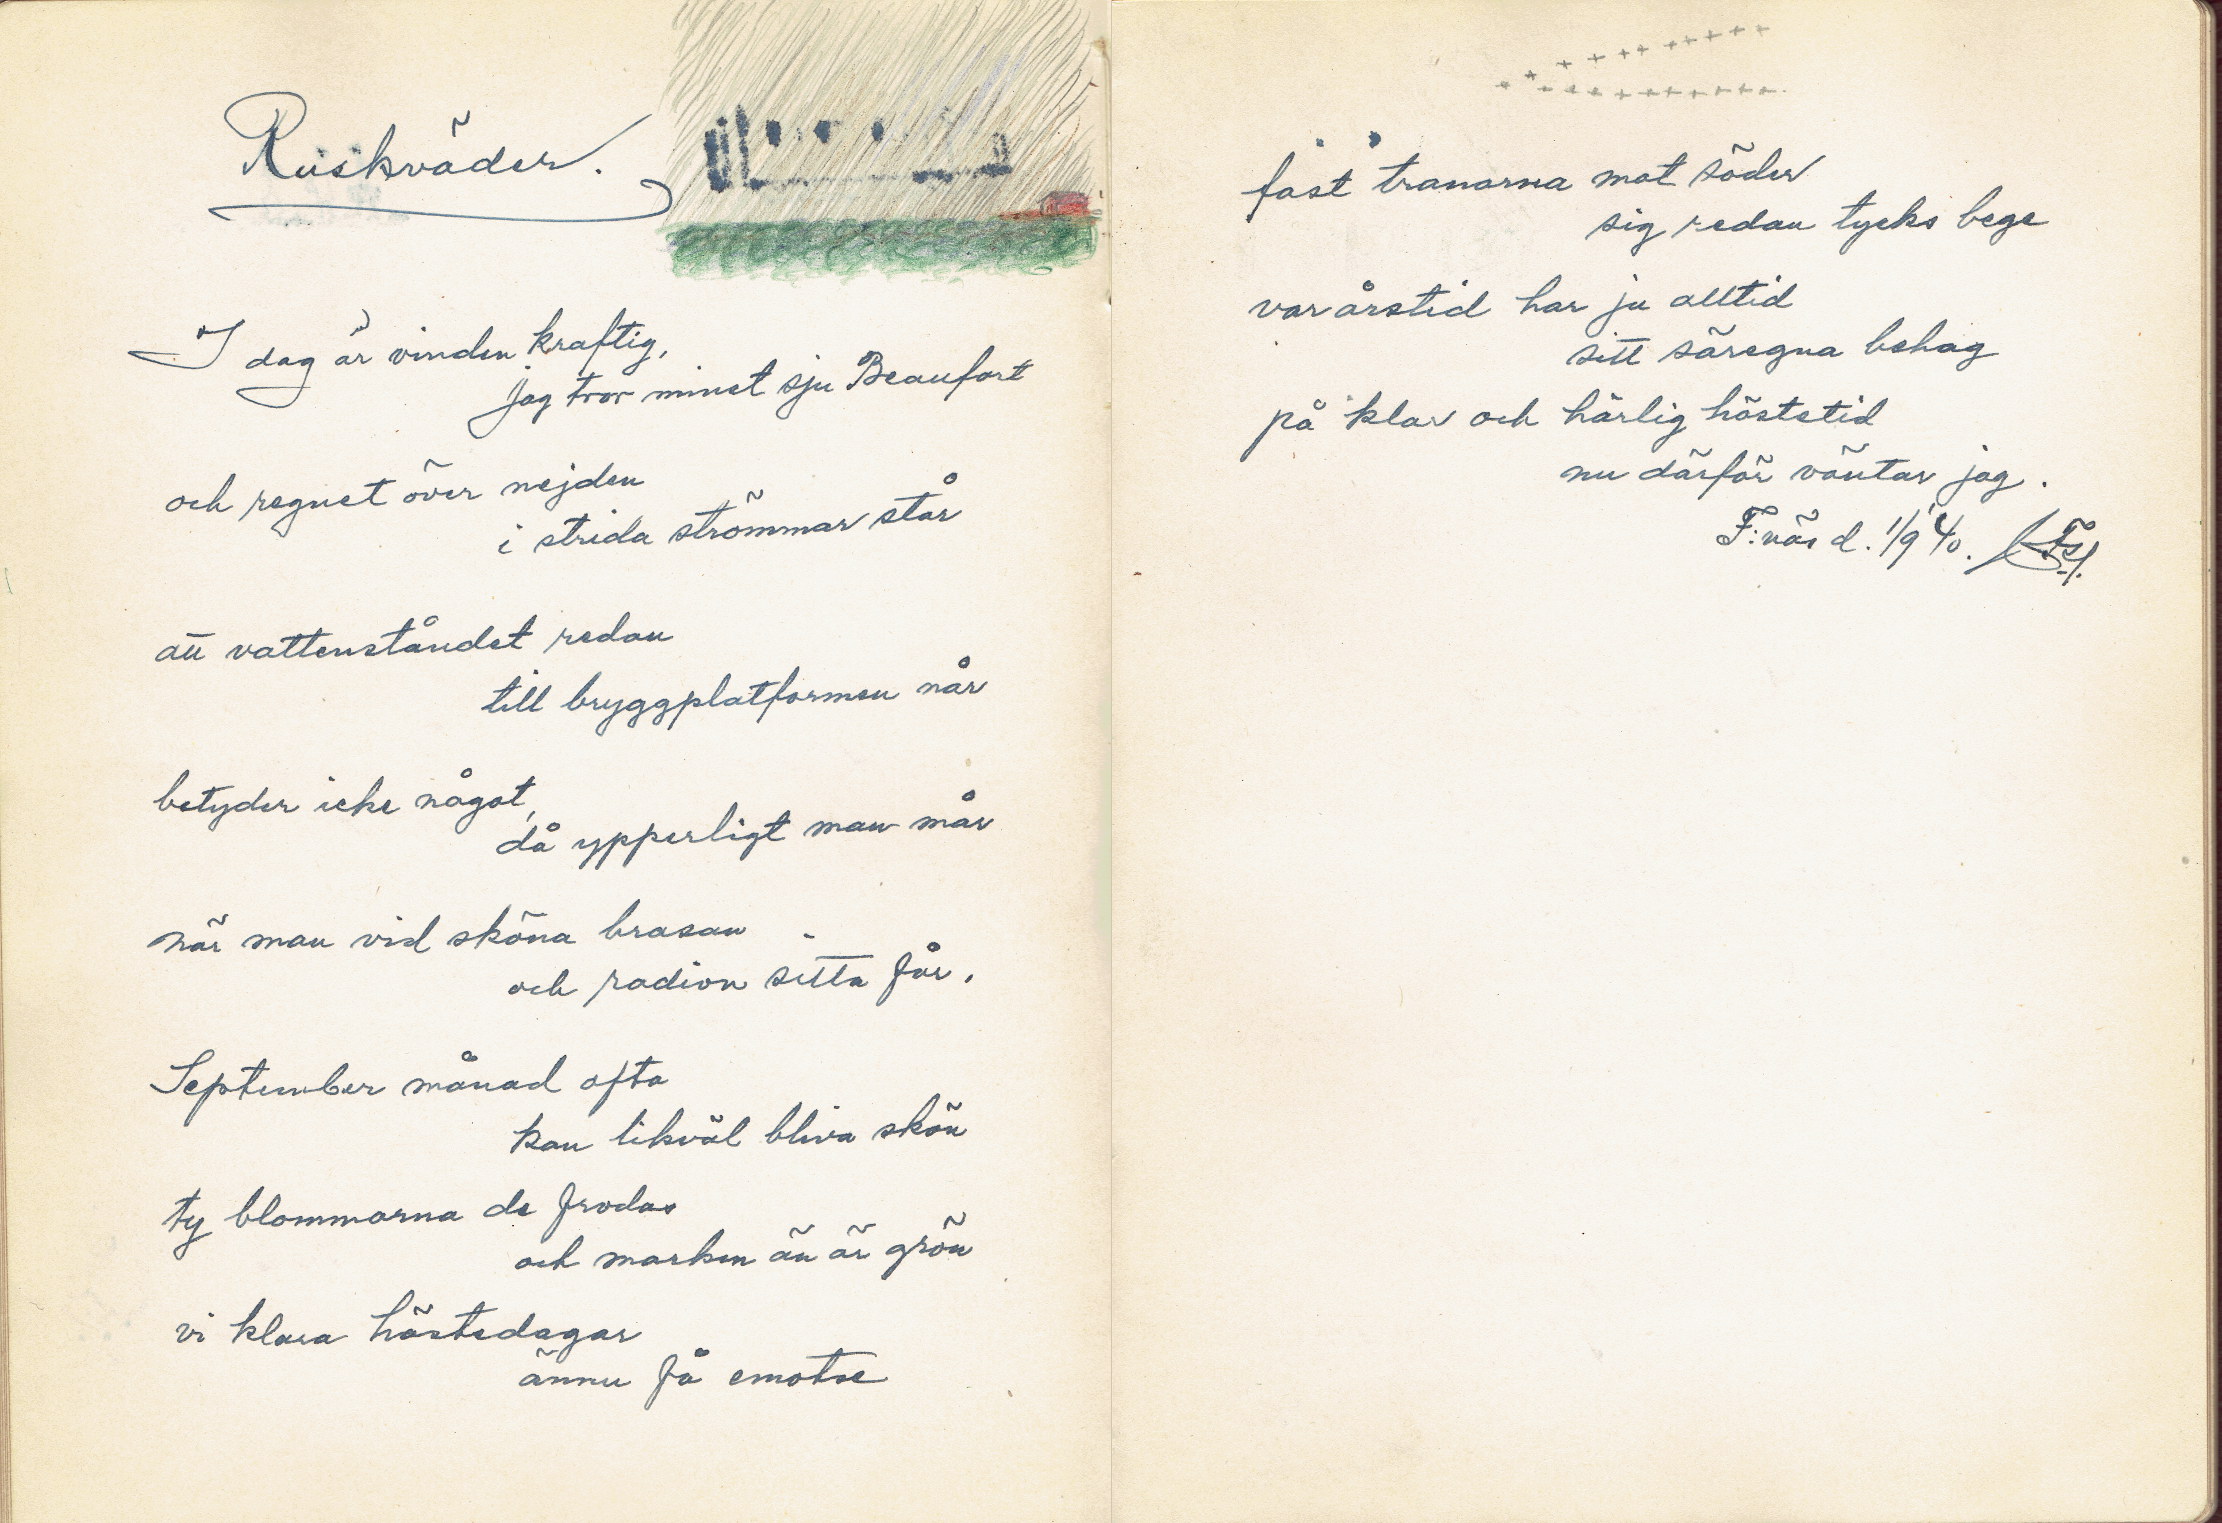 Ruskväder.
I dag är vinden kraftig,
jag tror minst sju Beaufort
och regnet över nejden
i strida strömmar står
att vattenståndet redan
till bryggplatformen når
betyder icke något,
då ypperligt man mår
när man vid sköna brasan
och radion sitta får.
September månad ofta
kan likväl bliva skön
ty blommorna de frodas
och marken än är grön
vi klara höstedagar
ännu få emotse
fast tranorna mot söder
sig redan tycks bege
var årstid har ju alltid
sitt säregna behag
på klar och härlig höstetid
nu därför väntar jag.
F:näs d. 1/9 '40.